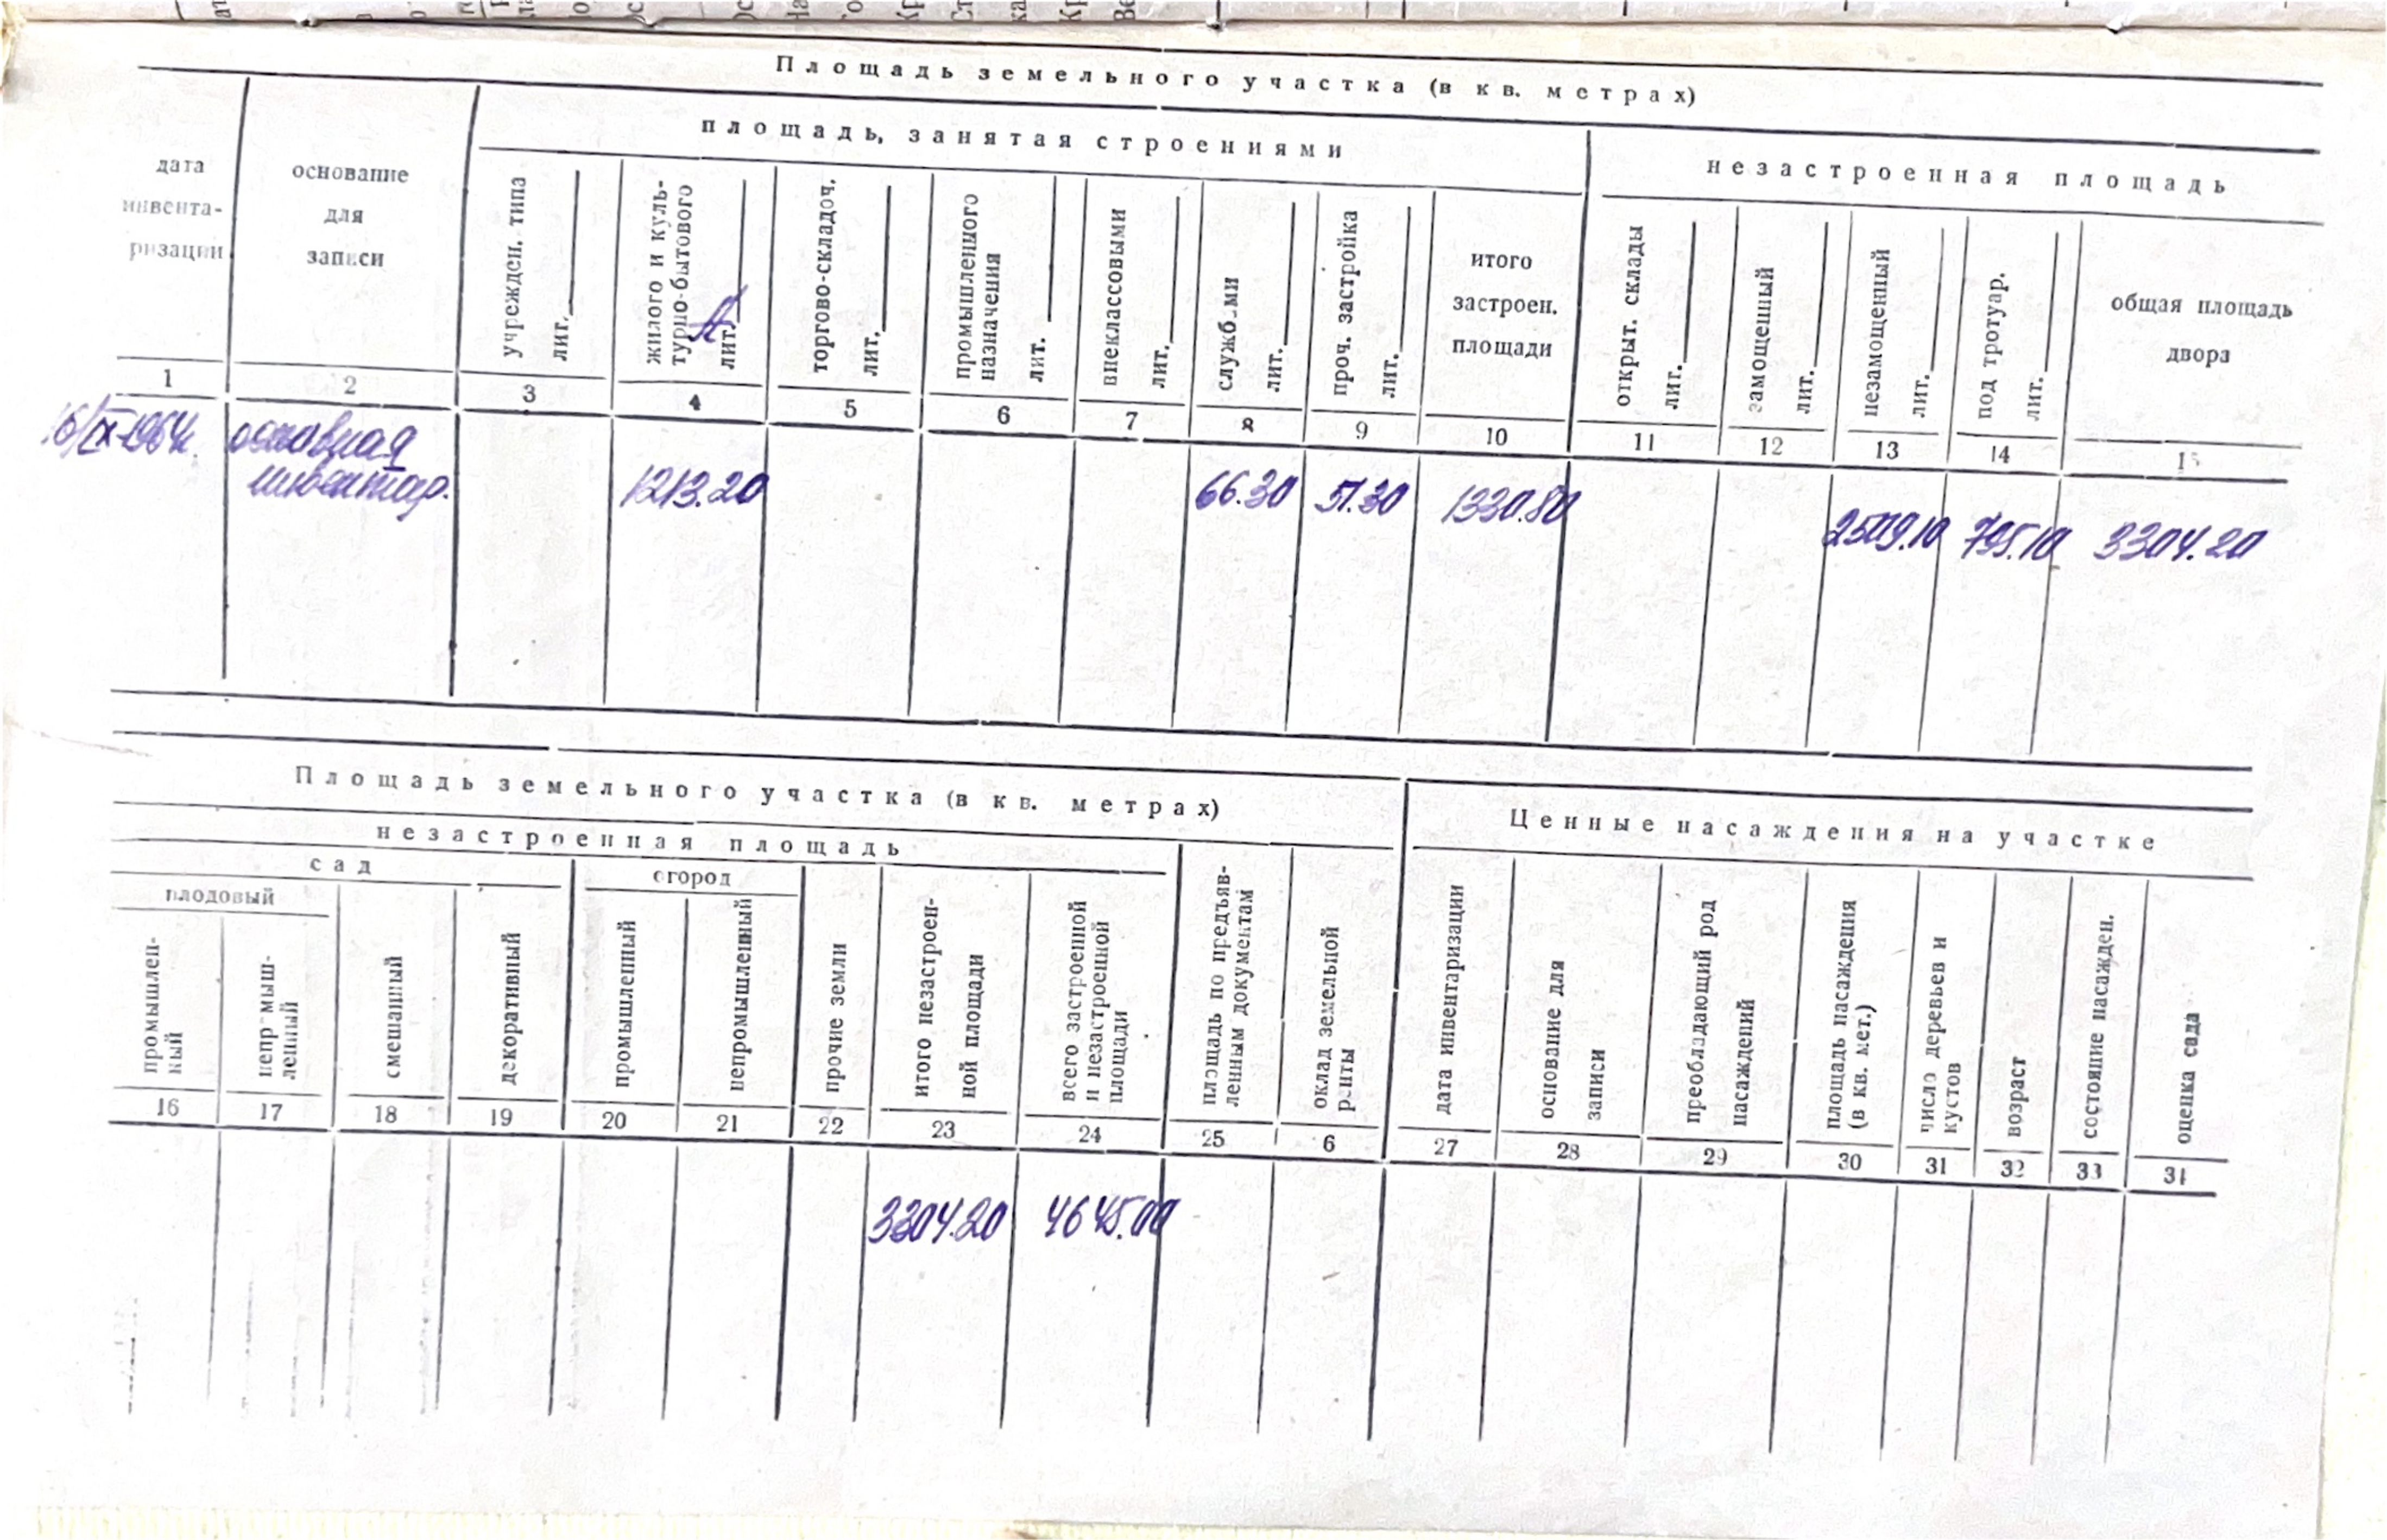 Площадь земельного участка (в кв. метрах)
площадь, занятая строениями
незастроенная площадь
дата инвента-ризации
основание для записи
учрежден. типа лит.
жилого и куль-турно-бытового лит. А
торгово-складоч. лит.
промышленного назначения лит.
внеклассовыми лит.
службами лит.
проч. застройка лит.
итого застроен. площади
открыт. склады лит.
замощенный лит.
незамощенный лит.
под тротуар. лит.
общая площадь двора
1 2 3 4 5 6 7 8 9 10 11 12 13 14 15
16/IX-1964г. основная инвентар. 1213.20 66.30 51.30 1330.80 2509.10 795.10 3304.20
Площадь земельного участка (в кв. метрах)
Ценные насаждения на участке
незастроенная площадь
сад
огород
плодовый
промышлен-ный
непр мыш-ленный
смешанный
декоративный
промышленный
непромышленный
прочие земли
итого незастроен-ной площади
всего застроенной и незастроенной площади
площадь по предъяв-ленным документам
оклад земельной р-нты
дата инвентаризации
основание для записи
преобладающий род насаждений
площадь насаждения (в кв. мет.)
число деревьев и кустов
возраст
состояние насажден.
оценка сада
16 17 18 19 20 21 22 23 24 25 6 27 28 29 30 31 32 33 34
3304.20 4645.00